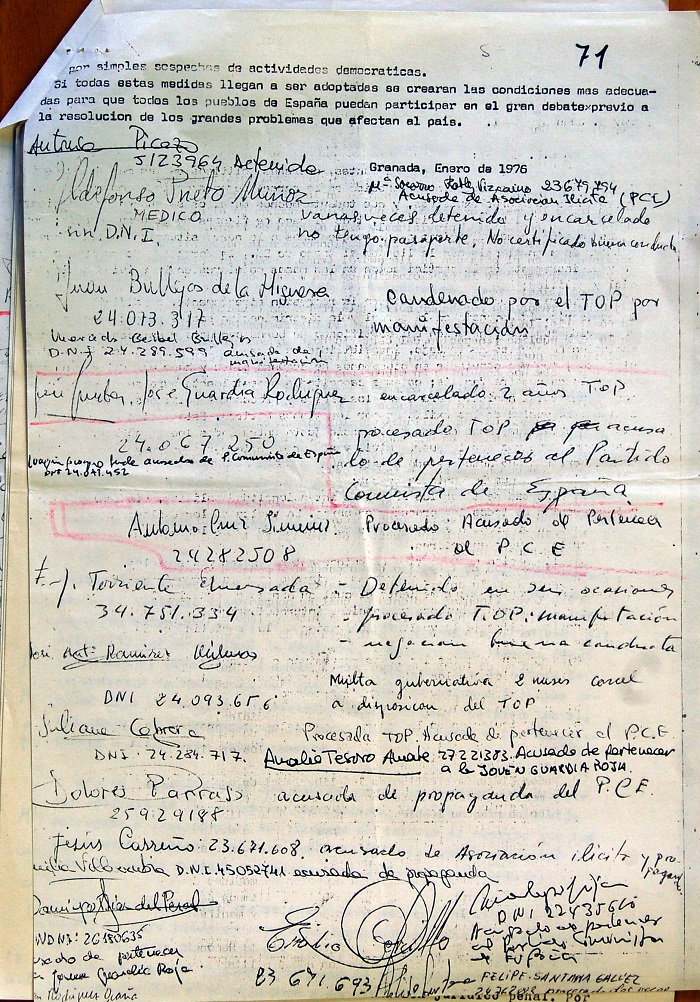 71
por simples sospechas de actividades democraticas.
Si todas estas medidas llegan a ser adoptadas se crearan las condiciones mas adecua-
das para que todos los pueblos de España puedan participar en el gran debate previo a
la resolucion de los grandes problemas que afectan al pais.
Antonia Picazo
5123964 Detenida
Granada, Enero de 1976
Mª Socorro Robles Vizcaino 23679794
Acusada de Asociacion Ilicita (PCE)
Ildefonso Prieto Muñoz
MEDICO
sin D.N.I.
varias veces detenido y encarcelado
no tengo pasaporte, No certificado buena conducta
Juan Bullejos de la Higuera
24.073.317
Condenado por el TOP por
manifestación
Bullejos
D.N.I 24.289.599 acusada de
manifestacion
Jose Guardia Rodriguez encarcelado 2 años TOP
24.067.250
procesado TOP acusa
do de pertenecer al Partido
Comunista de España
Joaquin acusado de P. Comunista de España
DNI 24.071.452
Antonio Cruz Jimenez. Procesado: Acusado de Pertenecer
24282508 al P C E
F. J. Torriente - Detenido en seis ocasiones
34.751.334 - procesado T.O.P: manifestación
- negacion buena conducta
José Ant. Ramirez
DNI 24.093.656
Multa gubernativa 2 meses carcel
a disposicion del TOP
Juliana Cabrera Procesada TOP. Acusada de pertenecer al P.C.E.
DNI. 24.284.717. Amalia Tesoro Amate 27221383. Acusado de pertenecer
a la JOVEN GUARDIA ROJA.
Dolores Parras acusada de propaganda del P.C.E.
25929188
Jesús Carreño 23.671.608. acusado de Asociación ilicita y pro
paganda
Emilia Villacumbia D.N.I. 45052741 acusada de propaganda
Domingo del Peral
DNI: 26180635
acusado de pertenecer
Joven Guardia Roja.
Rodriguez Ocaña
Emilio
23 671.693
DNI 22435610
Acusado de pertenecer
al Partido Comunista
de España
FELIPE SANTANA GALVEZ
penal, por